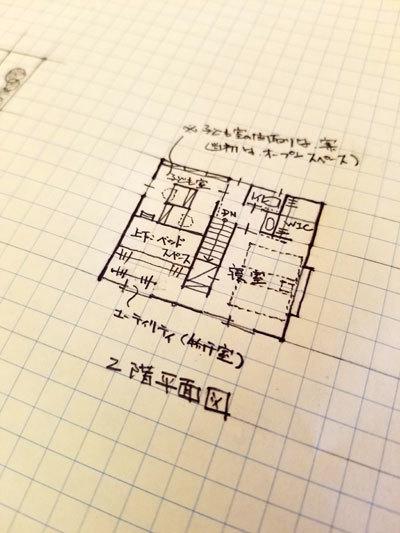 ※ 子ども室の間取りは、案
(当初は、オープンスペース)
子ども室
トイレ
WIC
DN
上下:ベッド
スペース
寝室
ユーティリティ(物干室)
2階平面図